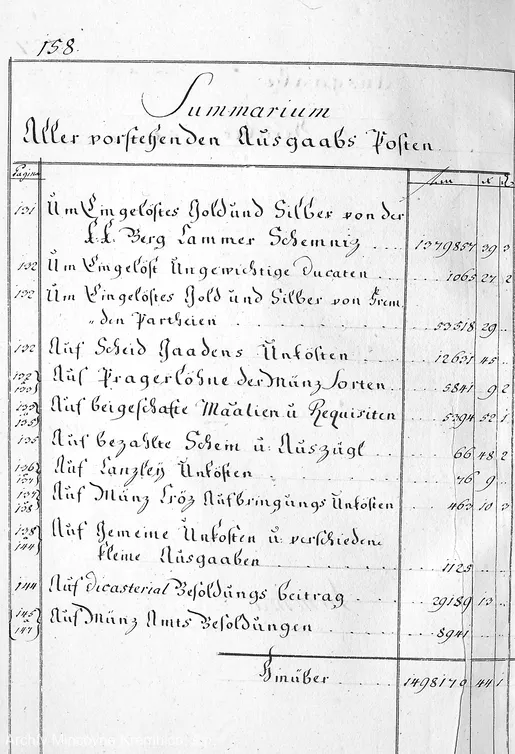 158.
Summarium
Aller vorstehenden Ausgaabs Posten
Pagina
131 Um Eingelöstes Gold und Silber von der
k: k: Berg Cammer Schemniz 1379857 39 3
132 Um Eingelöst Ungewichtige Ducaten 1065 27 2
132 Um Eingelöstes Gold und Silber von Frem
den Partheien 53518 29
132 Auf Scheid Gaadens Unkösten 12631 45
132 133 Auf Pragerlöhne der Münz Sorten 5841 9 2
135 Auf beigeschafte Maalien u Requisiten 5394 52 1
135 Auf bezahlte Schein u: Auszügl 66 48 2
136 137 Auf Canzley Unkösten 76 9
137 138 Auf Münz Aufbringungs Unkösten 463 10 3
138 a 144 Auf Gemeine Unkosten u: verschiedene
kleine Ausgaaben 1125
144 Auf dicasterial Besoldungs beitrag 29189 13
145 a 147 Auf Münz Amts Besoldungen 8941
1498170 44 1